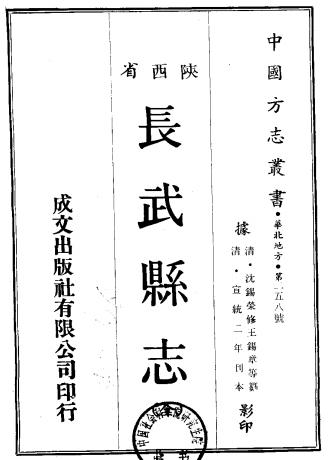 中國方志叢書•華北地方•第二五八號
據
清•沈錫榮修王錫章等纂
清•宣統二年刊本
影印
陝西省
長武縣志
成文出版社有限公司印行
中國社會科學院研究生院